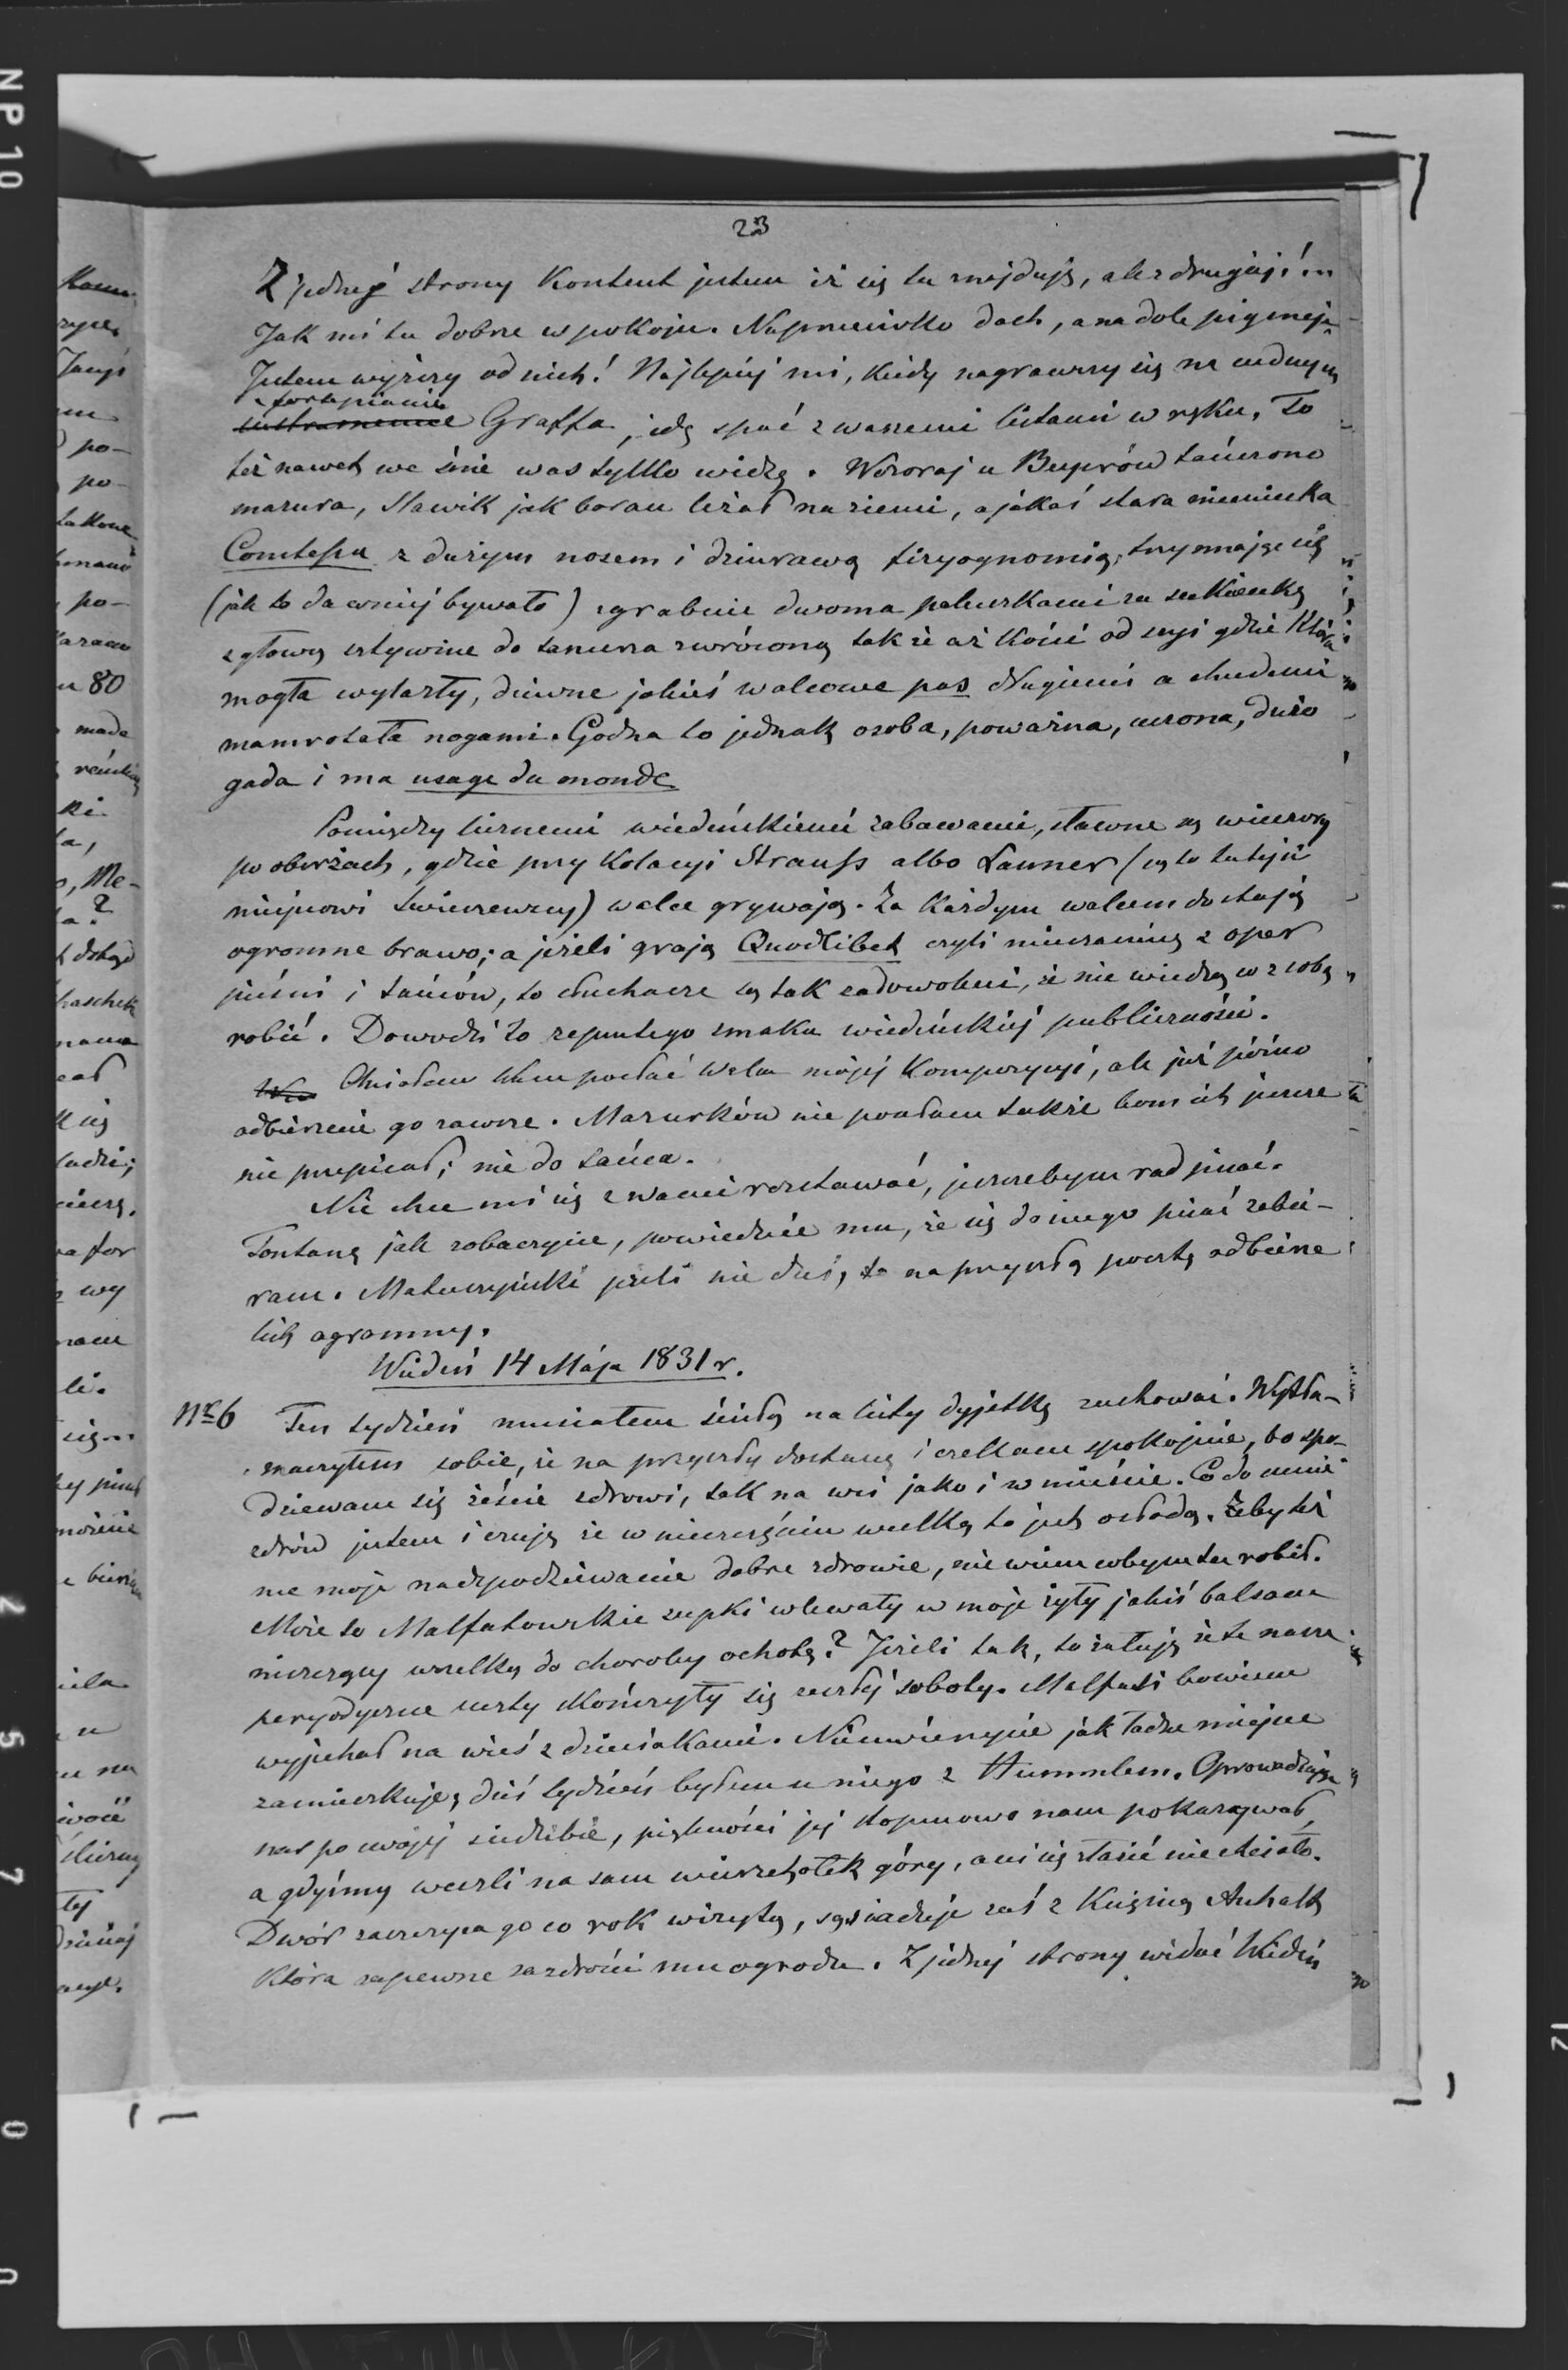 23
Z jednéj strony kontent jestem iż się tu znajduję, ale z drugiéj!...
Jak mi tu dobrze w pokoju. Naprzeciwko dach, a na dole pigmeje
Jestem wyższy od nich! Najlepiéj mi, kiedy nagrawszy się na nudnym
fortepianie
instrumencie Graffa, idę spać z waszemi listami w ręku. To
téż nawet we śnie was tylko widzę. Wczoraj u Beyerów tańcowano
mazura, Slawik jak baran leżał na ziemi, a jakaś stara niemiecka
Comtessa z dużym nosem i dziurawą fizyognomią, trzymając się
(jak to dawniéj bywało) zgrabnie dwoma paluszkami za sukienkę
z głową sztywnie do tancerza zwróconą tak że aż kości od szyi gdzie która
mogła wylazły, dziwne jakieś walcowe pas długiemi a chudemi
mamrotała nogami. Godna to jednak osoba, poważna, uczona, dużo
gada i ma usage du monde
Pomiędzy licznemi wiedeńskiemi zabawami, sławne są wieczory
po oberżach, gdzie przy kolacyi Strauss albo Lanner (są to tutejsi
miejscowi Świeszewscy) walce grywają. Za każdym walcem dostają
ogromne brawo; a jeżeli grają Quodlibet czyli mieszaninę z oper
pieśni i tańców, to słuchacze są tak zadowoleni, że nie wiedzą co z sobą
robić. Dowodzi to zepsutego smaku wiedeńskiéj publiczności.
Chciałem Wam posłać walca mojéj kompozycyi, ale już późno
odbierzecie go zawsze. Mazurków nie posyłam także bom ich jeszcze
nie przepisał; nie do tańca.
Nie chce mi się z wami rozstawać, jeszczebym rad pisać.
Fontanę jak zobaczycie, powiedzcie mu, że się do niego pisać zabie-
ram. Matuszyński jeżeli nie dziś, to na przyszłą pocztę odbierze
list ogromny.
Wiedeń 14 Maja 1831 r.
Nr 6 Ten tydzień musiałem ścisłą na listy dyjetkę zachować. Wytła-
maczyłem sobie, że na przyszły dostanę i czekam spokojnie, bo spo-
dziewam się żeście zdrowi, tak na wsi jako i w mieście. Co do mnie
zdrów jestem i czuję że w nieszczęściu wielką to jest osłodą. Żeby téż
nie moje nadspodziewanie dobre zdrowie, nie wiem cobym tu robił.
Może to Malfatowskie zupki wlewały w moje żyły jakiś balsam
niszczący wszelką do choroby ochotę? Jeżeli tak, to żałuję że te nasze
peryodyczne uczty skończyły się zeszłéj soboty. Malfati bowiem
wyjechał na wieś z dzieciakami. Nieuwierzycie jak ładne miejsce
zamieszkuje; dziś tydzień byłem u niego z Hummlem. Oprowadzając
nas po swojéj siedzibie, piękności jéj stopniowo nam pokazywał,
a gdyśmy weszli na sam wierzchołek góry, ani się złazić nie chciało.
Dwór zaszczyca go co rok wizytą, sąsiaduje zaś z Księżną Anhalt,
która zapewne zazdrości mu ogrodu. Z jednéj strony widać Wiedeń